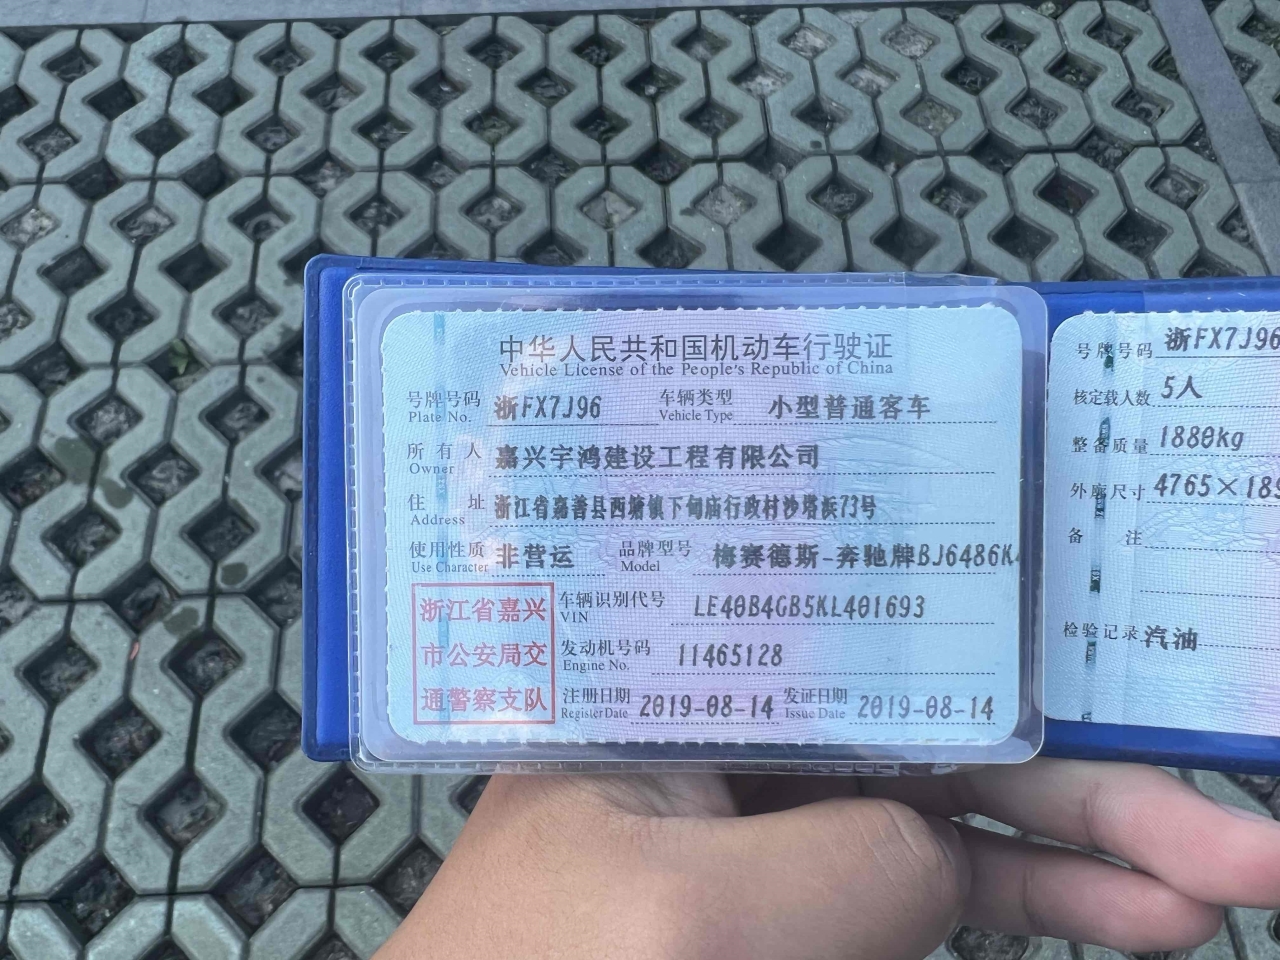 中华人民共和国机动车行驶证
Vehicle License of the People's Republic of China
号牌号码 浙FX7J96 车辆类型 小型普通客车
Plate No. Vehicle Type
所有人 嘉兴宇鸿建设工程有限公司
Owner
住址 浙江省嘉善县西塘镇下甸庙行政村沙塔浜73号
Address
使用性质 非营运 品牌型号 梅赛德斯-奔驰牌BJ6486K
Use Character Model
浙江省嘉兴
市公安局交
通警察支队
车辆识别代号 LE40B4GB5KL401693
VIN
发动机号码 11465128
Engine No.
注册日期 2019-08-14 发证日期 2019-08-14
Register Date Issue Date
号牌号码 浙FX7J96
核定载人数 5人
整备质量 1880kg
外廓尺寸 4765×189
备注
检验记录 汽油